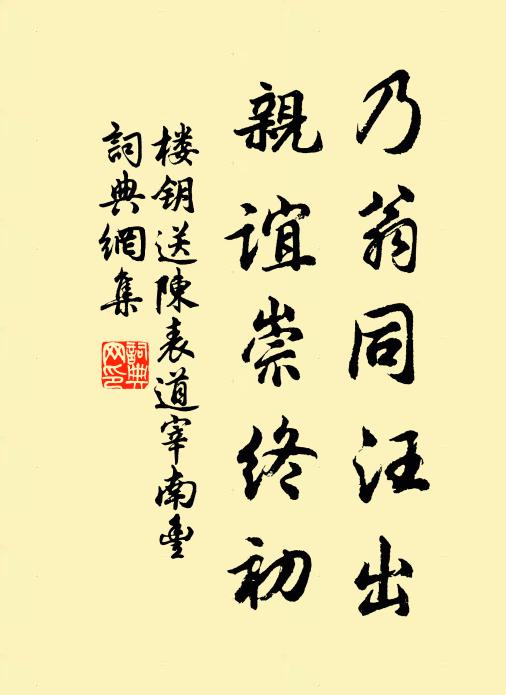 乃翁同汪出
親誼崇终初
楼钥送陳表道宰南豐
詞典網集
詞典网印